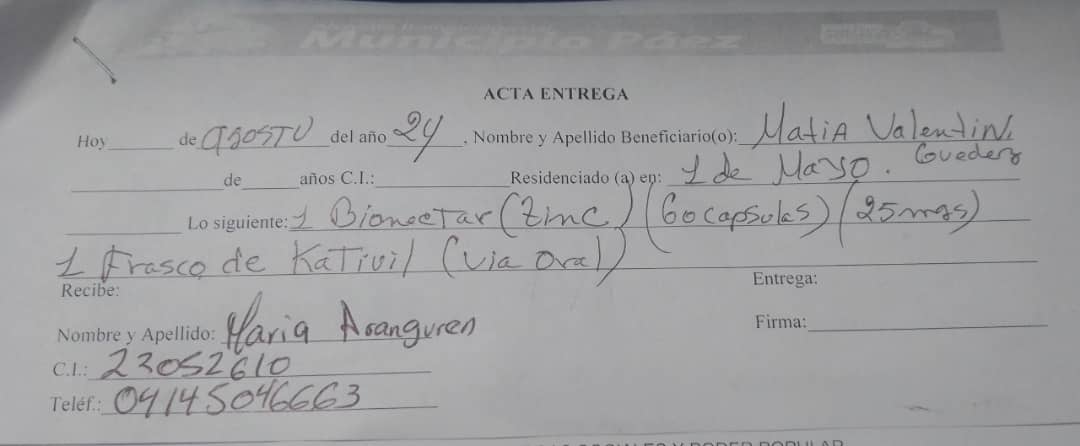 Municipio Páez
ACTA ENTREGA
Hoy______ de agosto del año 24, Nombre y Apellido Beneficiario(o): Matia Valentin
Guedez
____________de_____años C.I.:____________Residenciado (a) en: 1 de Mayo.
________ Lo siguiente: 1 Bionectar (Zinc) (60 capsulas) (25mgs)
1 Frasco de Kativil (via oral)
Recibe: Entrega:
Nombre y Apellido: Maria Aranguren Firma:____________
C.I.: 23052610
Teléf.: 04145046663